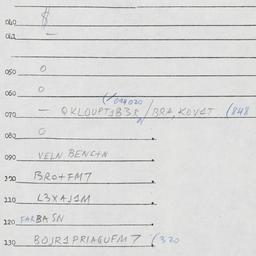 040
042 —
050 0
060 0
(✓094020
070 — QKLOUPT1B35/BRA,KOVCT (848
080 0
090 VELN BENC+N
100 BRO+FM7
110 L3XAJ1M
120 FARBASN
130 BOJR1PRIAGUFM7 (320